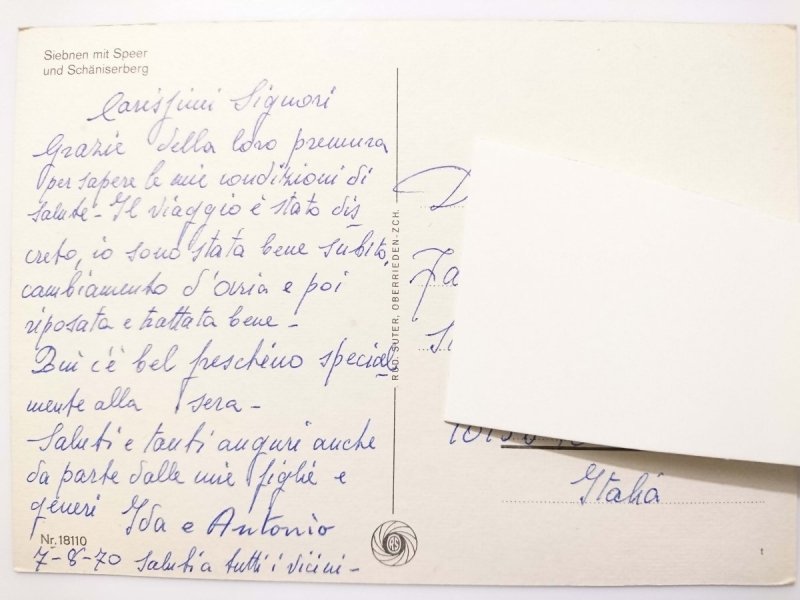 Siebnen mit Speer
und Schäniserberg
Carissimi Signori
Grazie della loro premura
per sapere le mie condizioni di
salute - Il viaggio è stato dis
creto, io sono stata bene subito,
cambiamento d'aria e poi
riposata e trattata bene -
Qui c'è bel freschino special
mente alla sera -
Saluti e tanti auguri anche
da parte dalle mie figlie e
generi Ida e Antonio
Nr. 18110
7-8-70 Saluti a tutti i vicini -
RUD. SUTER, OBERRIEDEN-ZCH.
Italia